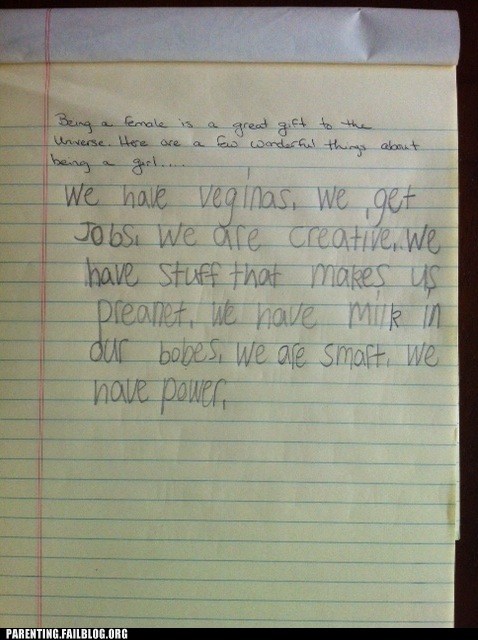 Being a female is a great gift to the
Universe. Here are a few wonderful things about
being a girl....
We have veginas. We get
Jobs. We are creative. We
have stuff that makes us
preanet. We have milk in
our bobes. We are smart. We
have power.
PARENTING.FAILBLOG.ORG